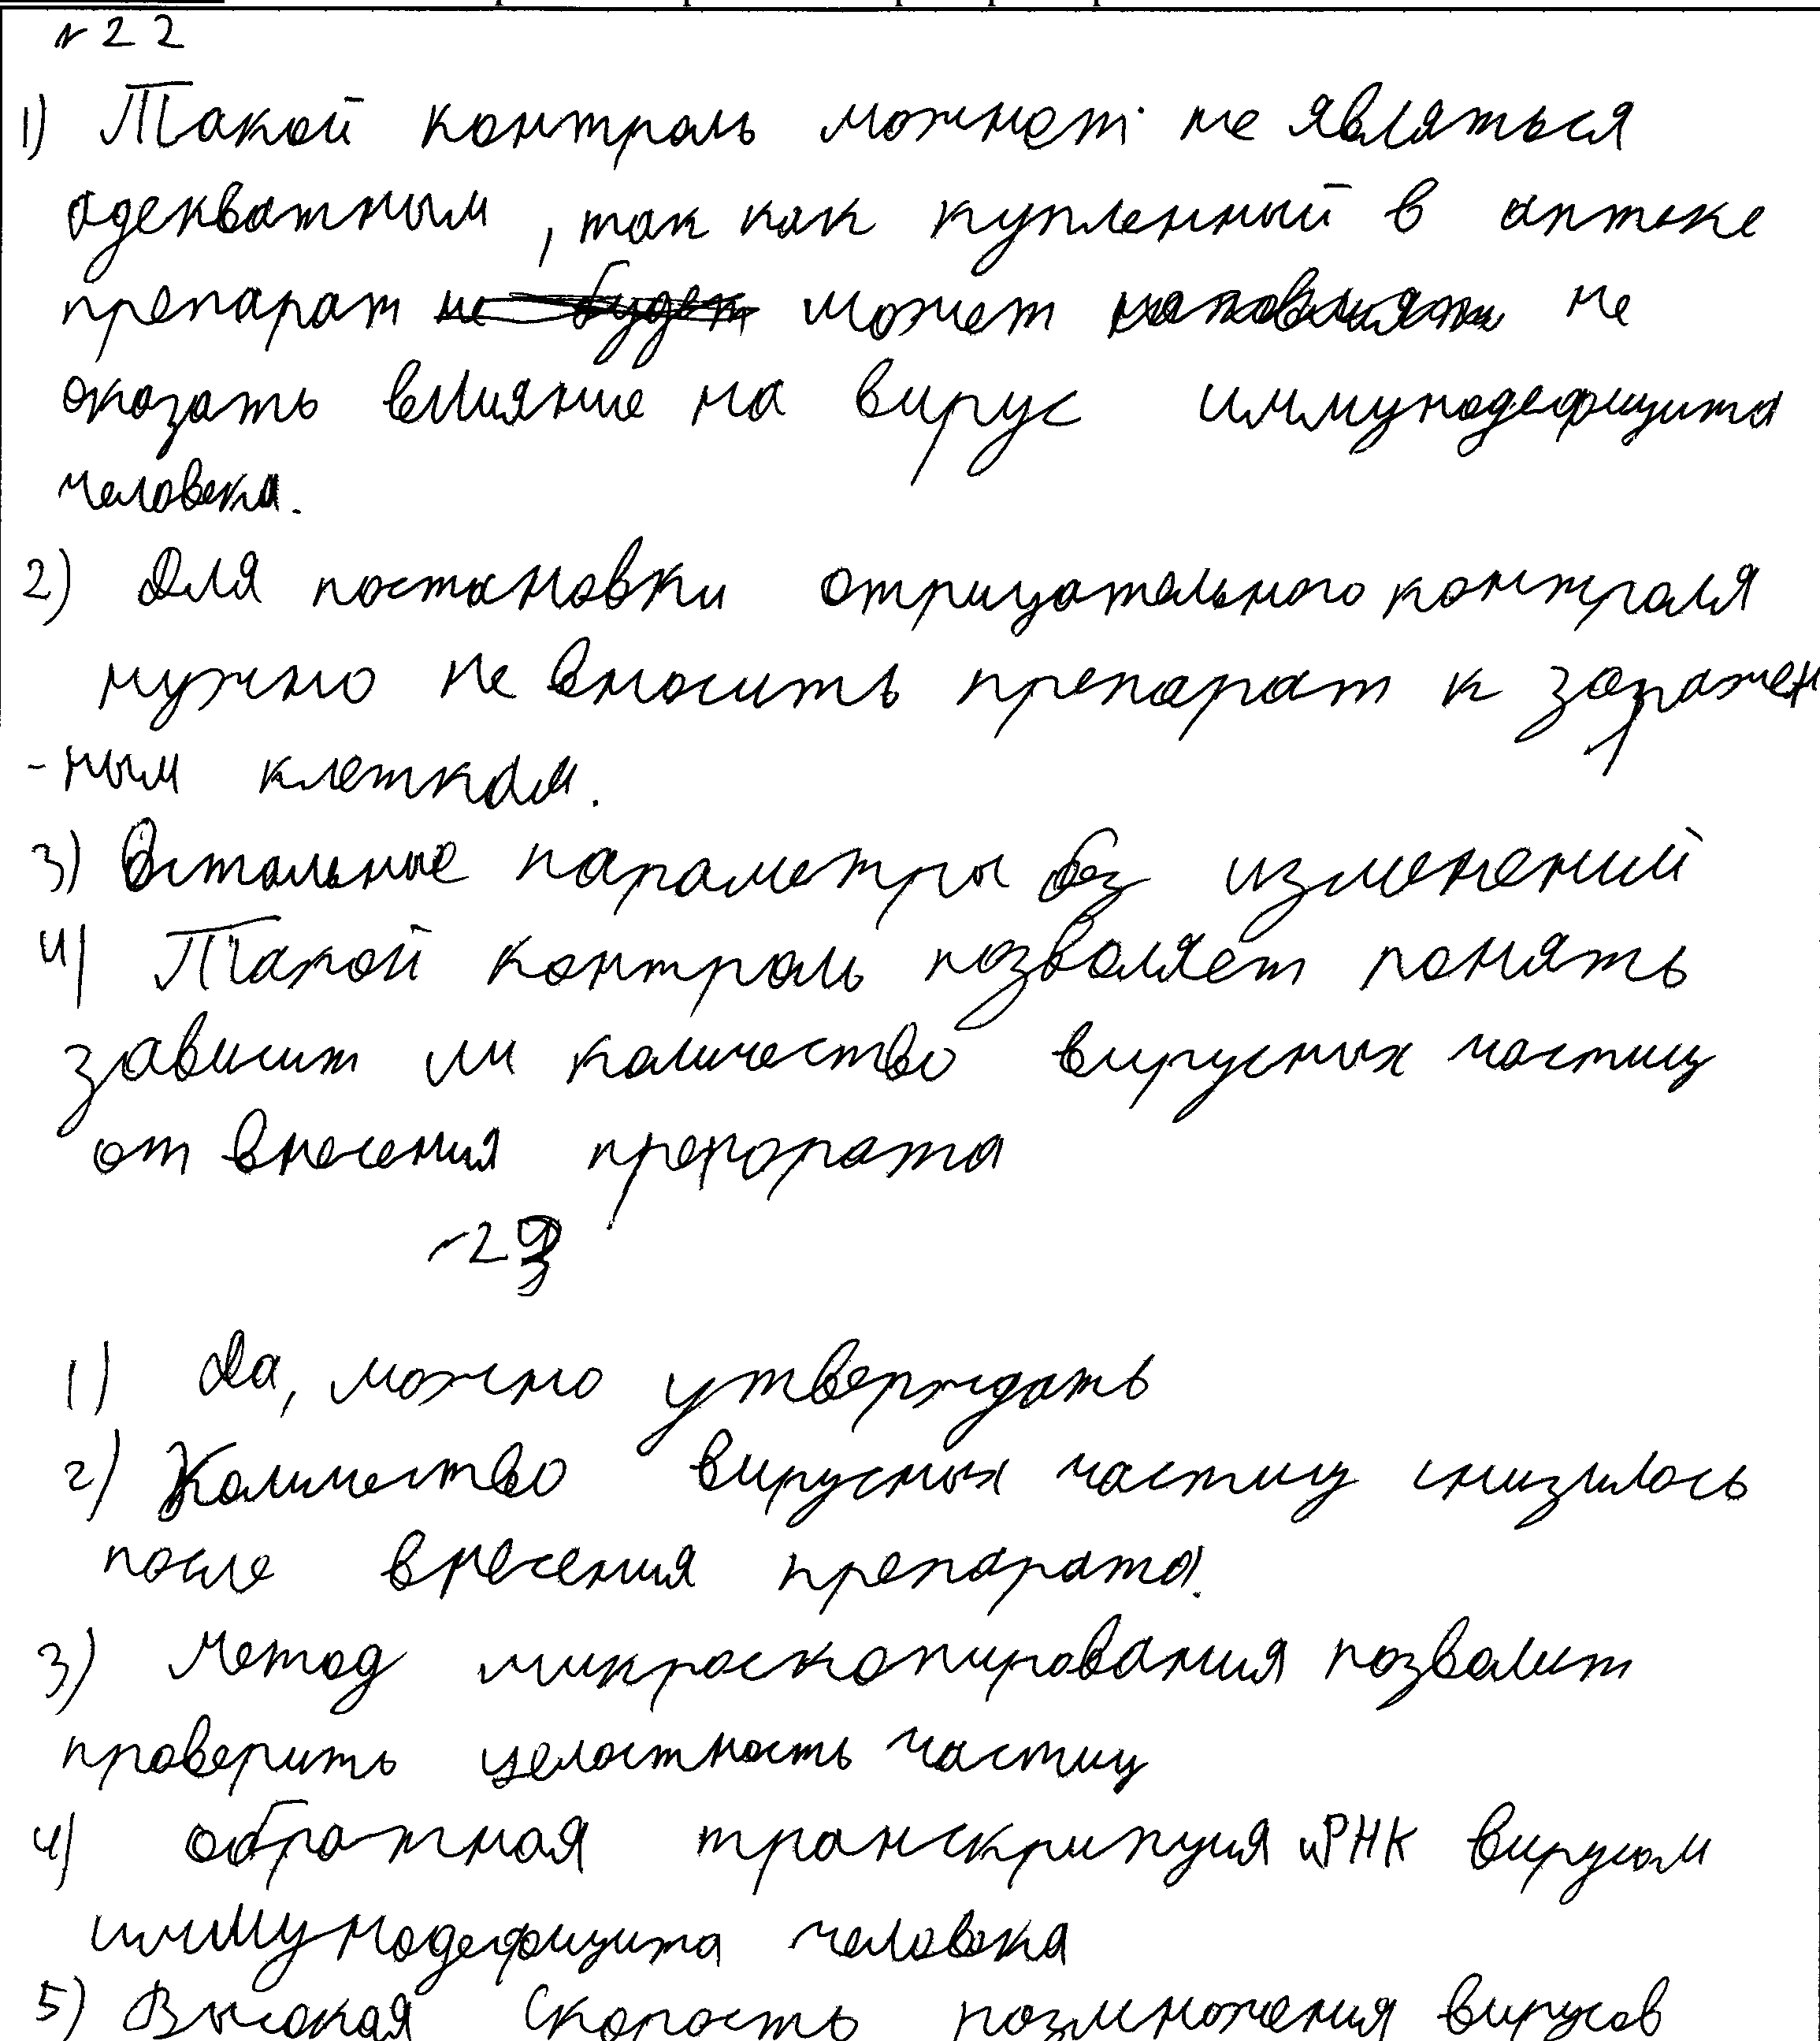 №22
1) Такой контроль можнет не являться
адекватным, так как купленный в аптеке
препарат не будет может не
оказать влияние на вирус иммунодефицита
человека.
2) Для постановки отрицательного контроля
нужно не вносить препарат к заражен
-ным клеткам.
3) Остальные параметры без изменений
4) Такой контроль позволяет понять
зависит ли количество вирусных частиц
от внесения препората
№23
1) Да, можно утверждать
2) Количество вирусных частиц снизилось
после внесения препарата.
3) Метод микроскопирования позволит
проверить целостность частиц
4) обратная транскрипция иРНК вирусом
иммунодефицита человека
5) Высокая скорость позмножения вирусов